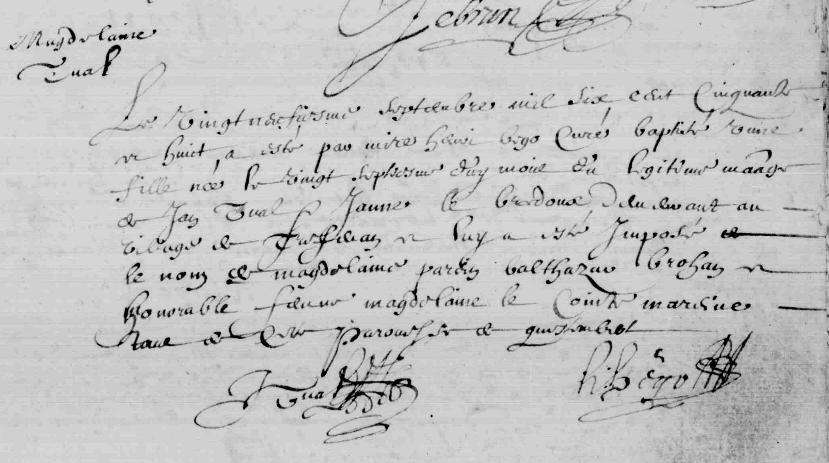 Lebrun
Magdelaine
Tual
Le Vingt neufiesme septembre mil six cent Cinquante
et huict, a esté par mire henri bego Curé baptisé Vune
fille née le vingt septiesme duy mois du legitime mariage
de Jan Tual et Janne le bredoux demeurant au
village de et luy a esté Imposé
le nom de magdelaine parain balthazar brohan et
honorable femme magdelaine le Comte maraine
de paroisse de questembert
J Tual
h: Bego